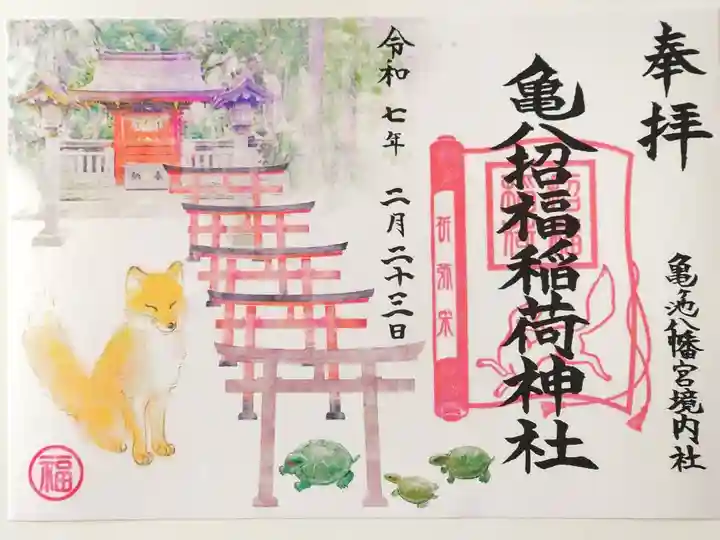 奉拝
亀池八幡宮境内社
亀八招福稲荷神社
令和七年二月二十三日
福
奉
納